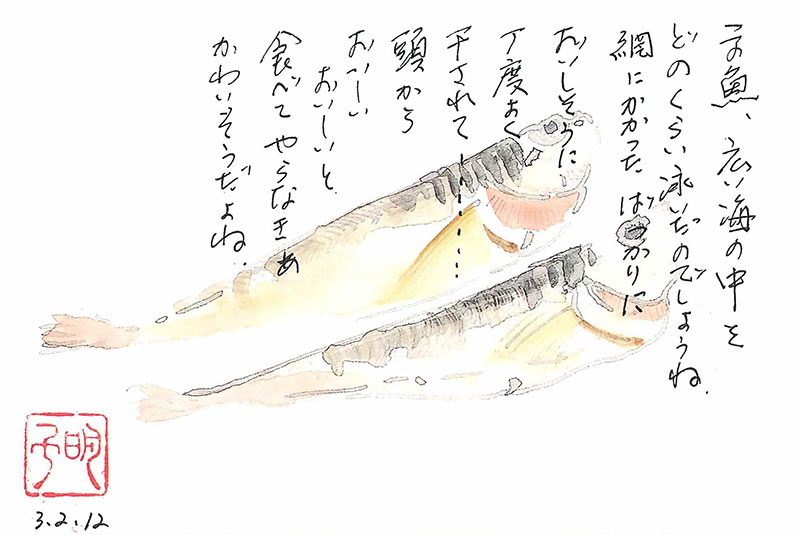 子魚、広い海の中を
どのくらい泳いだのでしょうね.
網にかかったばかりに
おいしそうに
丁度よく
干されて………
頭から
おいしい
おいしいと、
食べてやらなきゃ
かわいそうだよね.
明子
3.2.12